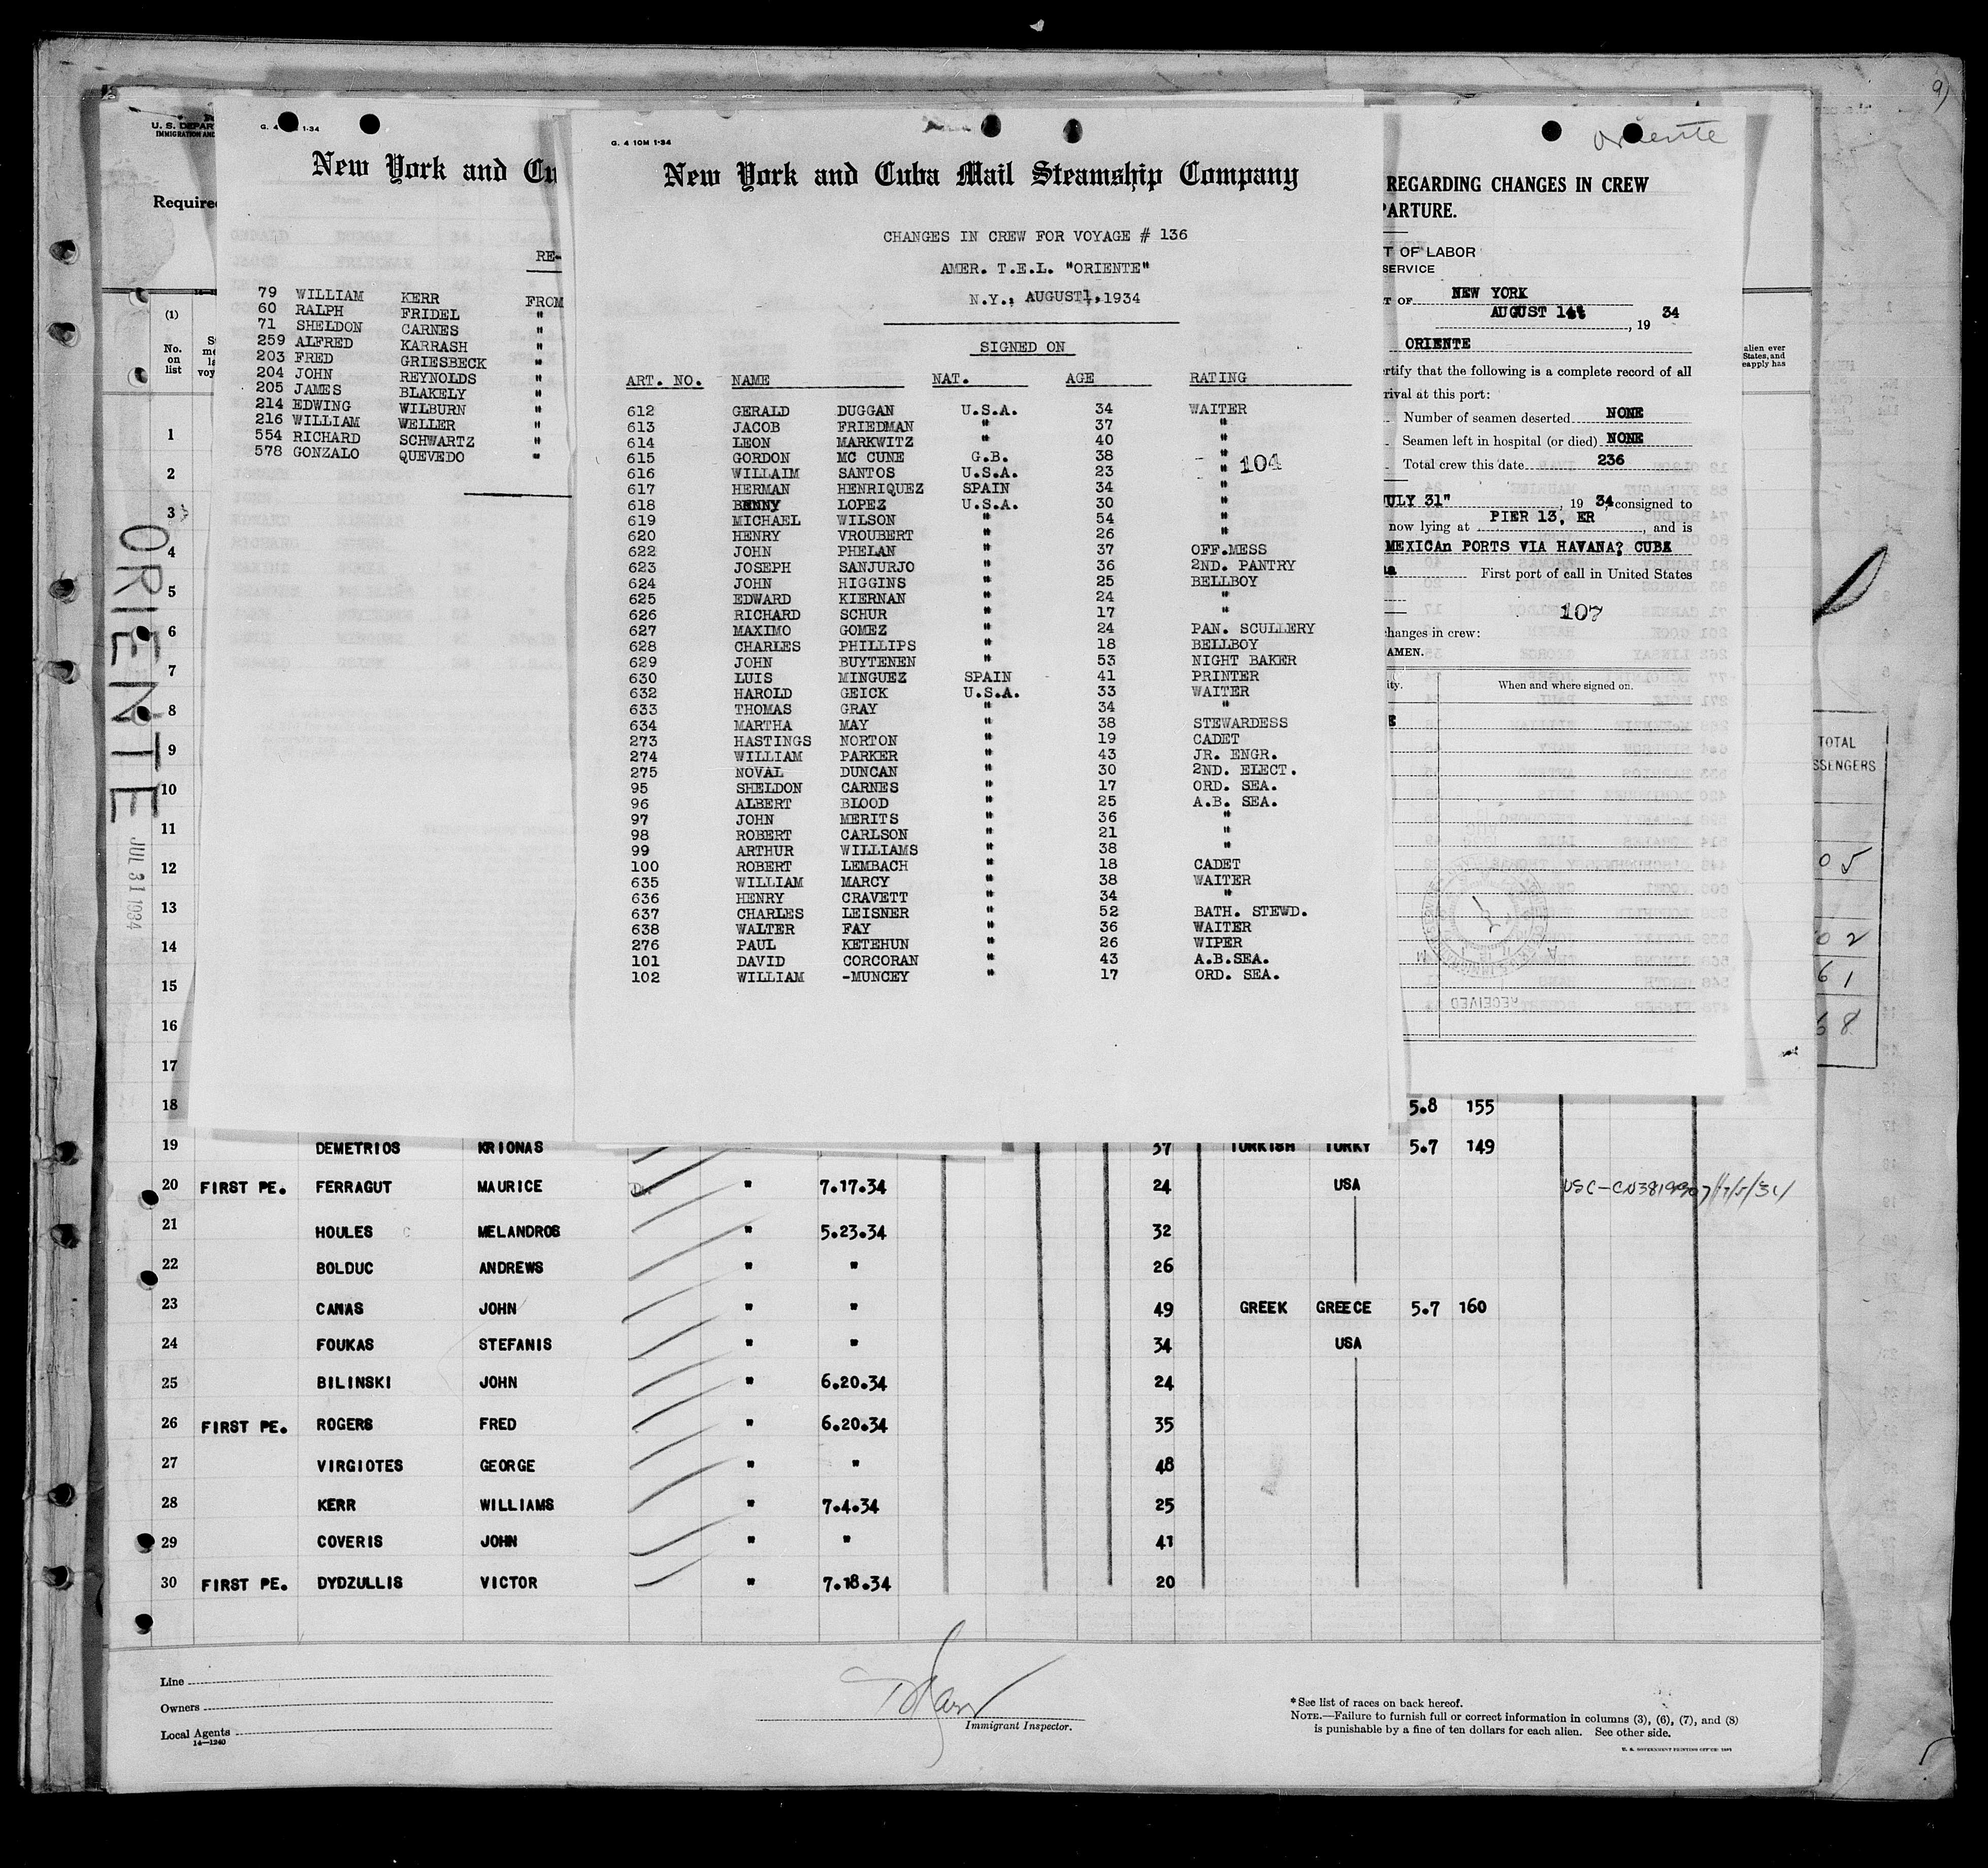 Oriente
U. S. DEPAR
IMMIGRATION AND
Require
(1)
No.
on
list
G. 4 1-34
New York and Cu
RE-
79 WILLIAM KERR FROM
60 RALPH FRIDEL "
71 SHELDON CARNES "
259 ALFRED KARRASH "
203 FRED GRIESBECK "
204 JOHN REYNOLDS "
205 JAMES BLAKELY "
214 EDWING WILBURN "
216 WILLIAM WELLER "
554 RICHARD SCHWARTZ "
578 GONZALO QUEVEDO "
G. 4 10M 1-34
New York and Cuba Mail Steamship Company
CHANGES IN CREW FOR VOYAGE # 136
AMER. T.E.L. "ORIENTE"
N.Y., AUGUST 1, 1934
SIGNED ON
ART. NO. NAME NAT. AGE RATING
612 GERALD DUGGAN U.S.A. 34 WAITER
613 JACOB FRIEDMAN " 37 "
614 LEON MARKWITZ " 40 "
615 GORDON MC CUNE G.B. 38 "
616 WILLAIM SANTOS U.S.A. 23 " 104
617 HERMAN HENRIQUEZ SPAIN 34 "
618 BENNY LOPEZ U.S.A. 30 "
619 MICHAEL WILSON " 54 "
620 HENRY VROUBERT " 26 "
622 JOHN PHELAN " 37 OFF.MESS
623 JOSEPH SANJURJO " 36 2ND. PANTRY
624 JOHN HIGGINS " 25 BELLBOY
625 EDWARD KIERNAN " 24 "
626 RICHARD SCHUR " 17 "
627 MAXIMO GOMEZ " 24 PAN. SCULLERY
628 CHARLES PHILLIPS " 18 BELLBOY
629 JOHN BUYTENEN " 53 NIGHT BAKER
630 LUIS MINGUEZ SPAIN 41 PRINTER
632 HAROLD GEICK U.S.A. 33 WAITER
633 THOMAS GRAY " 34 "
634 MARTHA MAY " 38 STEWARDESS
273 HASTINGS NORTON " 19 CADET
274 WILLIAM PARKER " 43 JR. ENGR.
275 NOVAL DUNCAN " 30 2ND. ELECT.
95 SHELDON CARNES " 17 ORD. SEA.
96 ALBERT BLOOD " 25 A.B. SEA.
97 JOHN MERITS " 36 "
98 ROBERT CARLSON " 21 "
99 ARTHUR WILLIAMS " 38 "
100 ROBERT LEMBACH " 18 CADET
635 WILLIAM MARCY " 38 WAITER
636 HENRY CRAVETT " 34 "
637 CHARLES LEISNER " 52 BATH. STEWD.
638 WALTER FAY " 36 WAITER
276 PAUL KETEHUN " 26 WIPER
101 DAVID CORCORAN " 43 A.B.SEA.
102 WILLIAM -MUNCEY " 17 ORD. SEA.
REGARDING CHANGES IN CREW
ARTURE.
T OF LABOR
SERVICE
T OF NEW YORK
AUGUST 1st, 19 34
ORIENTE
ertify that the following is a complete record of all
rival at this port:
Number of seamen deserted NONE
Seamen left in hospital (or died) NONE
Total crew this date 236
JULY 31" , 19 34, consigned to
now lying at PIER 13, ER , and is
MEXICAn PORTS VIA HAVANA? CUBA
First port of call in United States
107
hanges in crew:
AMEN.
ity. When and where signed on.
RECEIVED
alien ever
States, and
reapply has
TOTAL
SSENGERS
05
02
61
68
ORIENTE
JUL 31 1934
1
2
3
4
5
6
7
8
9
10
11
12
13
14
15
16
17
18 5.8 155
19 DEMETRIOS KRIONAS 37 TURKISH TURKY 5.7 149
20 FIRST PE. FERRAGUT MAURICE " 7.17.34 24 USA
21 HOULES MELANDROS " 5.23.34 32
22 BOLDUC ANDREWS " " 26
23 CANAS JOHN " " 49 GREEK GREECE 5.7 160
24 FOUKAS STEFANIS " " 34 USA
25 BILINSKI JOHN " 6.20.34 24
26 FIRST PE. ROGERS FRED " 6.20.34 35
27 VIRGIOTES GEORGE " " 48
28 KERR WILLIAMS " 7.4.34 25
29 COVERIS JOHN " " 41
30 FIRST PE. DYDZULLIS VICTOR " 7.18.34 20
Line
Owners
Local Agents
14—1240
Immigrant Inspector.
* See list of races on back hereof.
NOTE.—Failure to furnish full or correct information in columns (3), (6), (7), and (8)
is punishable by a fine of ten dollars for each alien. See other side.